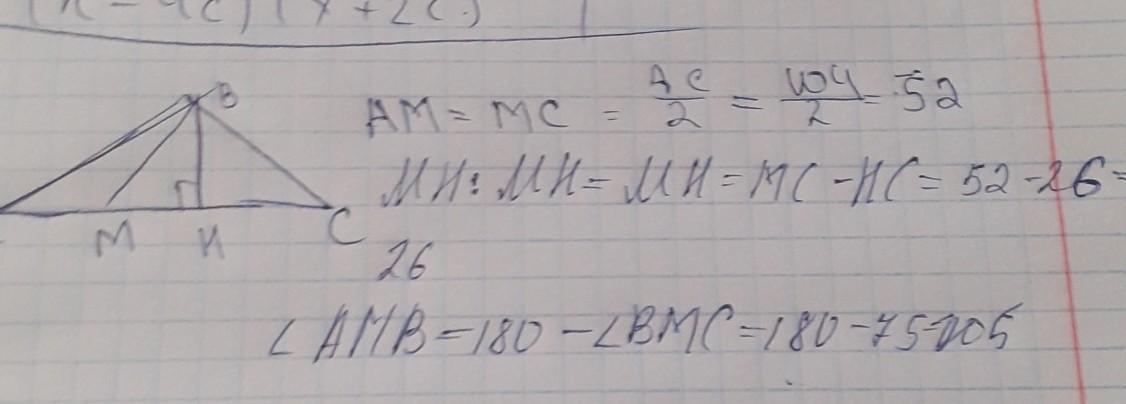 (x - 4c) (x + 2c)
B
AM = MC = AC/2 = 104/2 = 52
MH: MH = MH = MC - HC = 52 - 26 =
M H C
26
∠ AMB = 180 - ∠BMC = 180 - 75 = 105